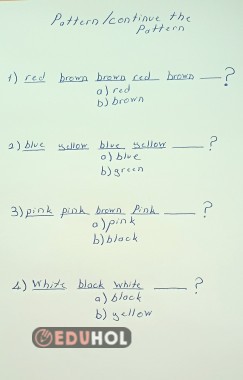 Pattern/continue the
Pattern
1) red brown brown red brown ___?
a) red
b) brown
2) blue yellow blue yellow ___?
a) blue
b) green
3) pink pink brown Pink ___?
a) pink
b) black
4) White black white ___?
a) black
b) yellow
EDUHOL